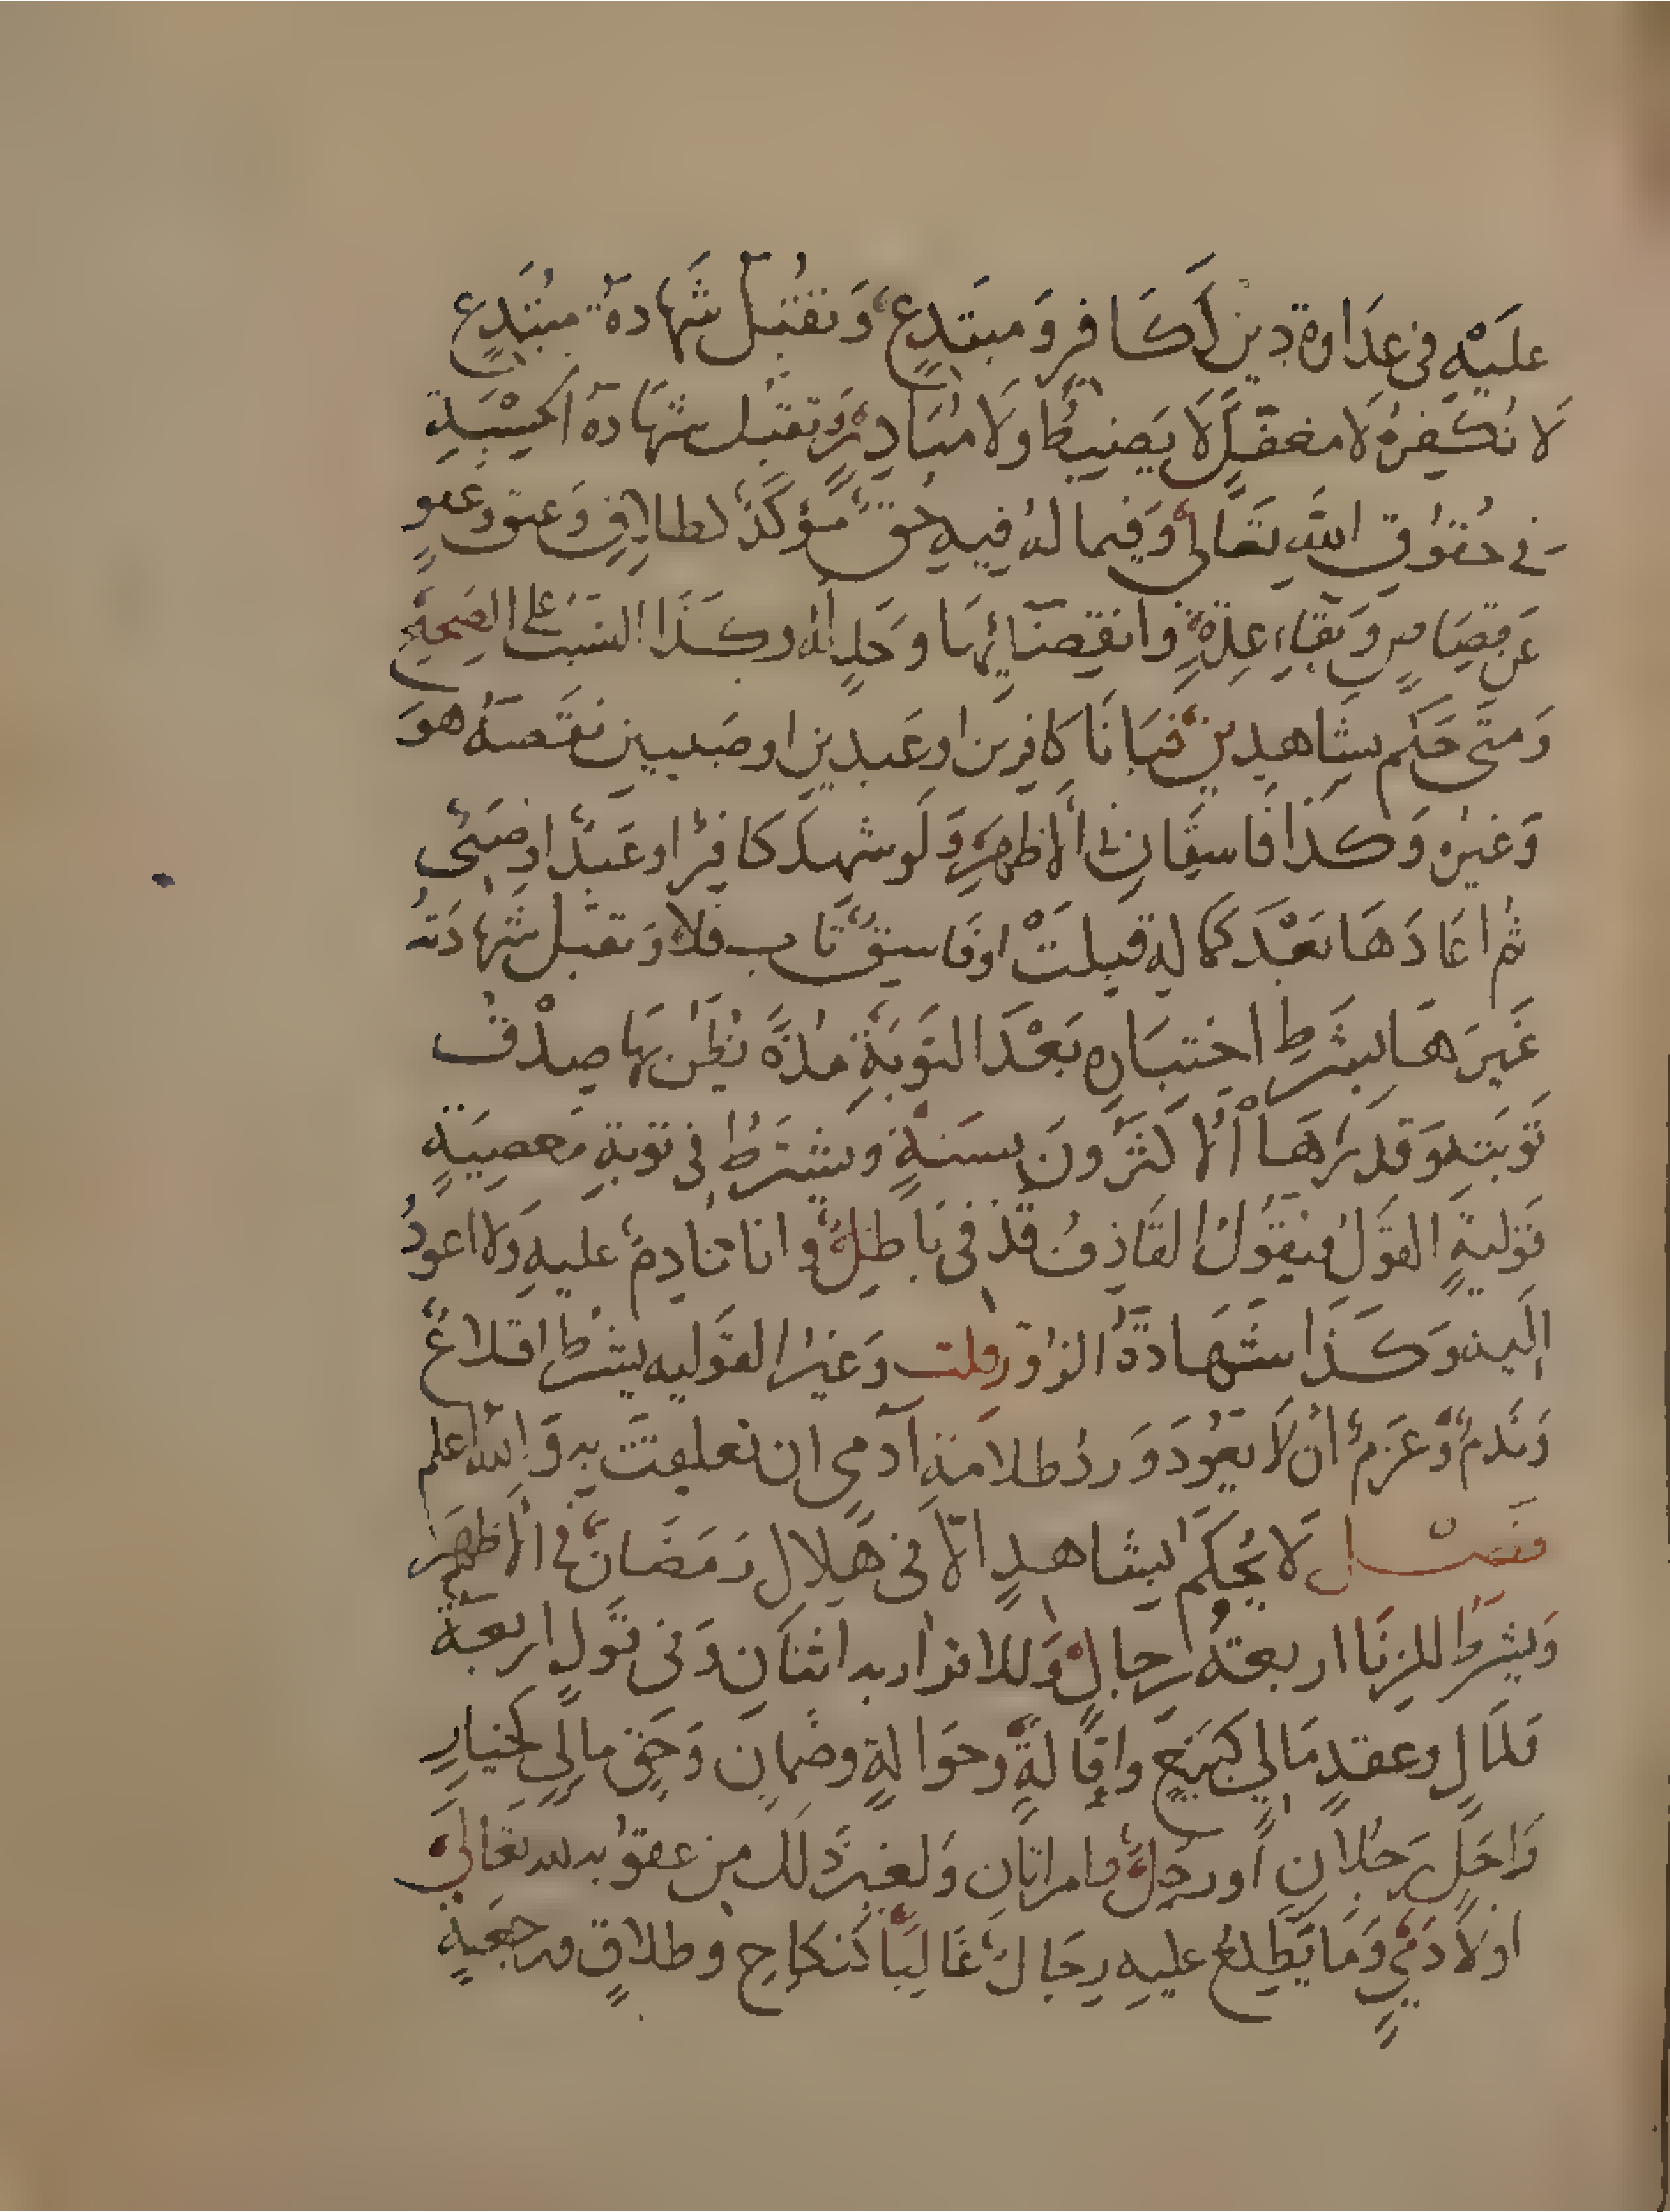 عليه في عداوة دين ككافر ومبتدع وتقبل شهادة مبتدع
لا نكفره لا مغفل لا يضبط ولا مبادر وتقبل شهادة الحسبة
في حقوق الله تعالى وفيما له فيه حق مؤكد كطلاق وعتق وعفو
عن قصاص وبقاء عدة وانقضائها وحد له وكذا النسب على الصحيح
ومتى حكم بشاهدين فبانا كافرين او عبدين او صبيين نقضه هو
وغيره وكذا فاسقان في الاظهر ولو شهد كافر او عبد او صبي
ثم اعادها بعد كماله قبلت او فاسق تاب فلا وتقبل شهادته
غيرها بشرط اختباره بعد التوبة مدة يظن بها صدق
توبته وقدرها الاكثرون بسنة ويشترط في توبة معصية
قولية القول فيقول القاذف قذفي باطل وانا نادم عليه ولا اعود
اليه وكذا شهادة الزور قلت وغير القوليه يشترط اقلاع
وندم وعزم ان لا يعود ورد ظلامة آدمي ان تعلقت به والله اعلم
فصل لا يحكم بشاهد الا في هلال رمضان في الاظهر
ويشترط للزنا اربعة رجال وللاقرار به اثنان وفي قول اربعة
ولمال وعقد مالي كبيع واقالة وحوالة وضمان وحق مالي كخيار
واجل رجلان او رجل وامراتان ولغير ذلك من عقوبه لله تعالى
او لآدمي وما يطلع عليه رجال غالبا كنكاح وطلاق ورجعة